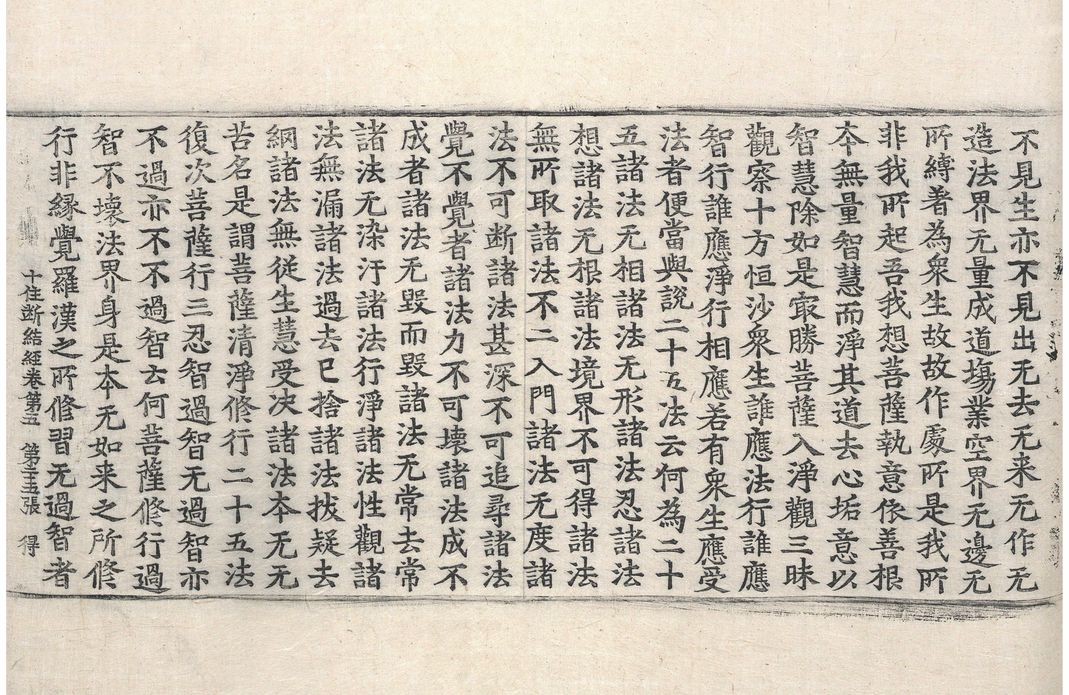 不見生亦不見出无去无来无作无
造法界无量成道場業空界无邊无
所縛著為衆生故故作處所是我所
非我所起吾我想菩薩執意依善根
本無量智慧而淨其道去心垢意以
智慧除如是冣勝菩薩入淨觀三昧
觀察十方恒沙衆生誰應法行誰應
智行誰應淨行相應若有衆生應受
法者便當與說二十五法云何為二十
五諸法无相諸法无形諸法忍諸法
想諸法无根諸法境界不可得諸法
無所取諸法不二入門諸法无度諸
法不可断諸法甚深不可追尋諸法
覺不覺者諸法力不可壞諸法成不
成者諸法无毀而毀諸法无常去常
諸法无染汙諸法行淨諸法性觀諸
法無漏諸法過去已捨諸法拔疑去
網諸法無從生慧受决諸法本无无
苦名是謂菩薩清淨修行二十五法
復次菩薩行三忍智過智无過智亦
不過亦不不過智云何菩薩修行過
智不壞法界身是本无如来之所修
行非緣覺羅漢之所修習无過智者
十住断結經卷第五 第三五張 得